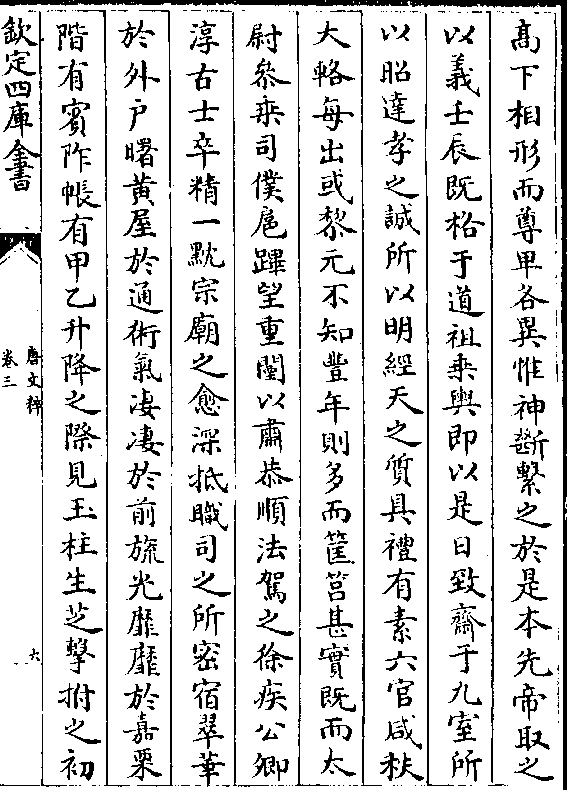 高下相形而尊卑各異惟神斷繫之於是本先帝取之
以義壬辰既格于道祖乗輿即以是日致齋于九室所
以昭達孝之誠所以明經天之質具禮有素六官咸秩
大輅每出或黎元不知豐年則多而筐筥甚實既而太
尉叅乗司僕扈蹕望重闉以肅恭順法駕之徐疾公卿
淳古士卒精一黙宗廟之愈深抵職司之所密宿翠華
於外戸曙黄屋於通術氣凄凄於前旒光靡靡於嘉栗
階有賓阼帳有甲乙升降之際見玉柱生芝擊拊之初
欽定四庫全書
唐文粹
卷三
六